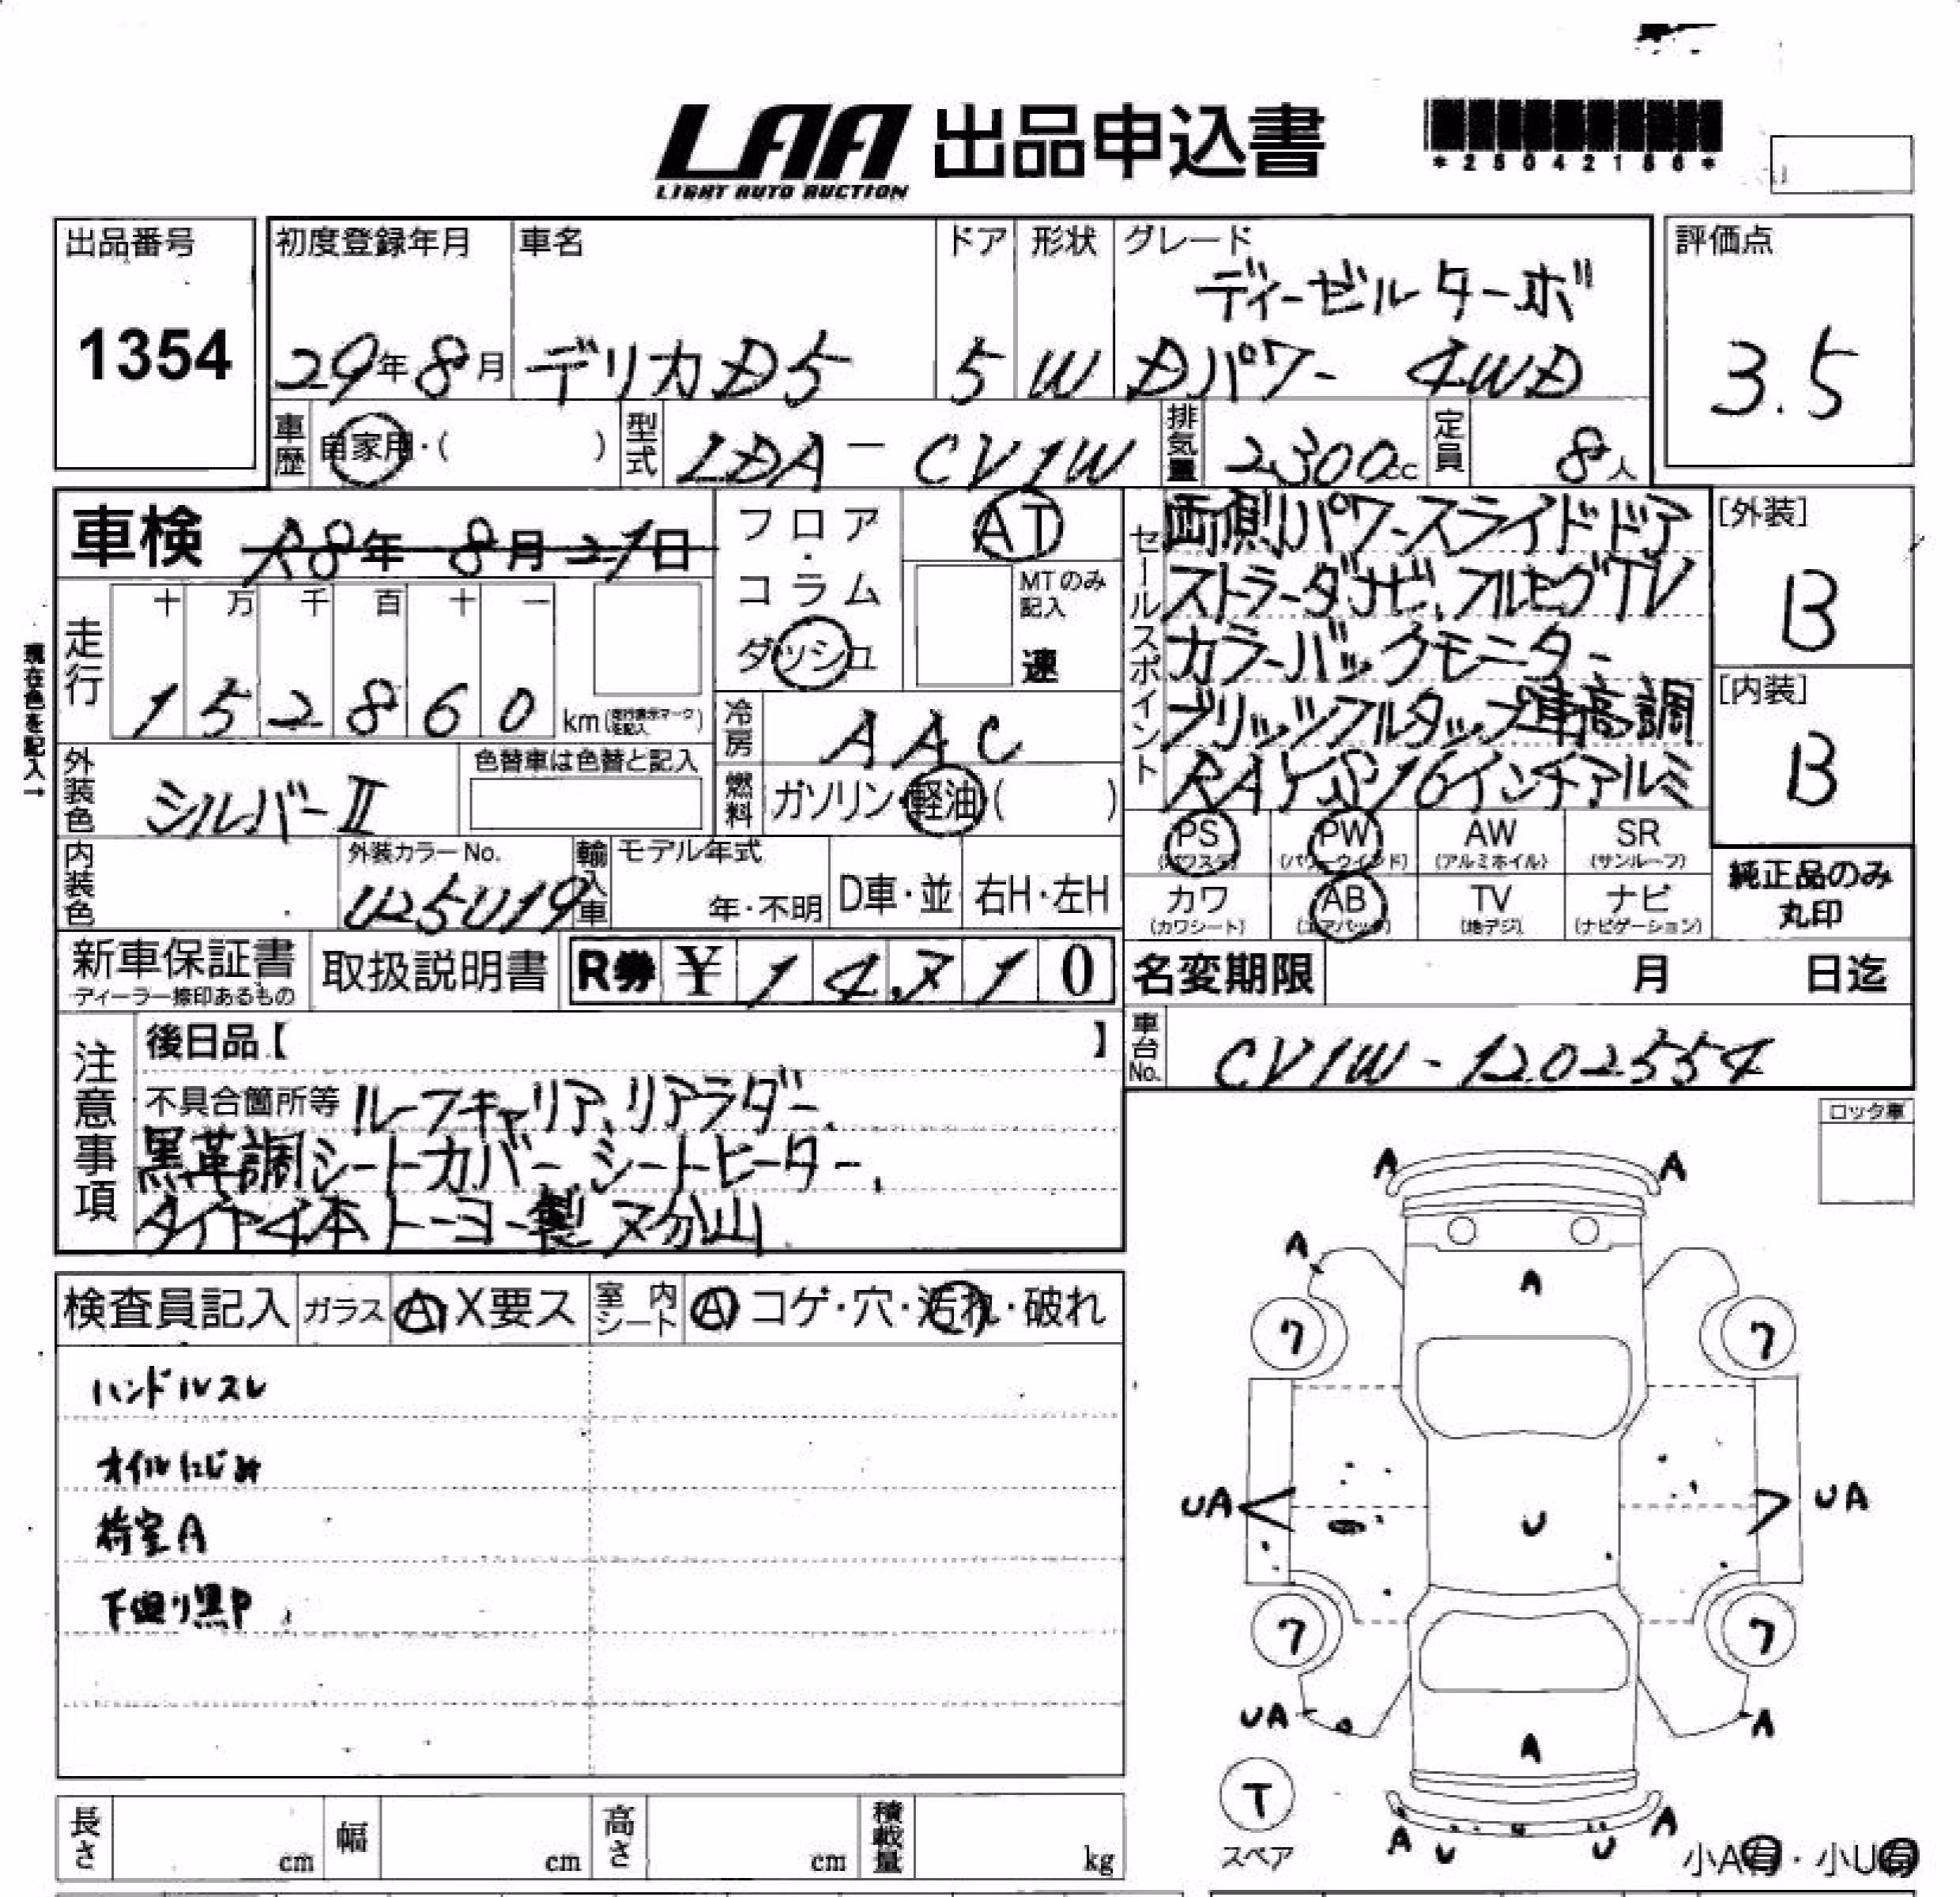 LAA 出品申込書
LIGHT AUTO AUCTION
*25042186*
出品番号
1354
初度登録年月 車名 ドア 形状 グレード
ディーゼルターボ
29年8月 デリカD5 5 W Dパワー 4WD
評価点
3.5
車歴 自家用・( ) 型式 LDA-CV1W 排気量 2300cc 定員 8人
車検 R8年 8月21日
フロア・コラム ダッシュ
AT
MTのみ記入
速
走行 十 万 千 百 十 一
1 5 2 8 6 0 km
現在色を記入→
冷房 AAC
外装色 シルバーⅡ 色替車は色替と記入
燃料 ガソリン・軽油( )
セールスポイント
両側パワースライドドア
ストラーダナビ、フルセグTV
カラーバックモニター
ブリッツフルタップ車高調
RAYS16インチアルミ
[外装]
B
[内装]
B
PS (パワステ) PW (パワーウインド) AW (アルミホイル) SR (サンルーフ)
カワ (カワシート) AB (エアバッグ) TV (地デジ) ナビ (ナビゲーション)
純正品のみ丸印
内装色 外装カラーNo. U25U19 輸入車 モデル年式 年・不明 D車・並 右H・左H
新車保証書 ディーラー捺印あるもの 取扱説明書 R券 ¥14,710
名変期限 月 日迄
車台No. CV1W-1202554
注意事項
後日品【 】
不具合箇所等 ルーフキャリア、リアラダー、
黒革調シートカバー、シートヒーター、
タイヤ4本トーヨー製ヌ分山
ロック車
検査員記入 ガラス A, X要ス 室内シート A コゲ・穴・汚れ・破れ
ハンドルスレ
オイルにじみ
荷室A
下廻り黒P
A A
A
A
ワ ワ
UA U UA
ワ ワ
UA A
A
T
スペア
A U U A
小A有・小U有
長さ cm 幅 cm 高さ cm 積載量 kg